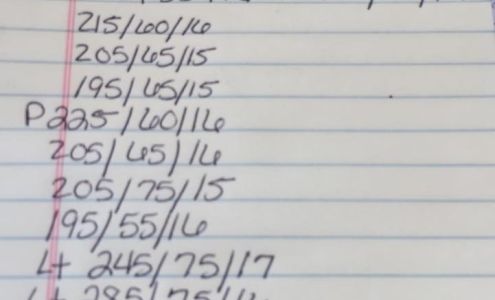 215/60/16
205/65/15
195/65/15
P225/60/16
205/65/16
205/75/15
195/55/16
Lt 245/75/17
Lt 285/75/16